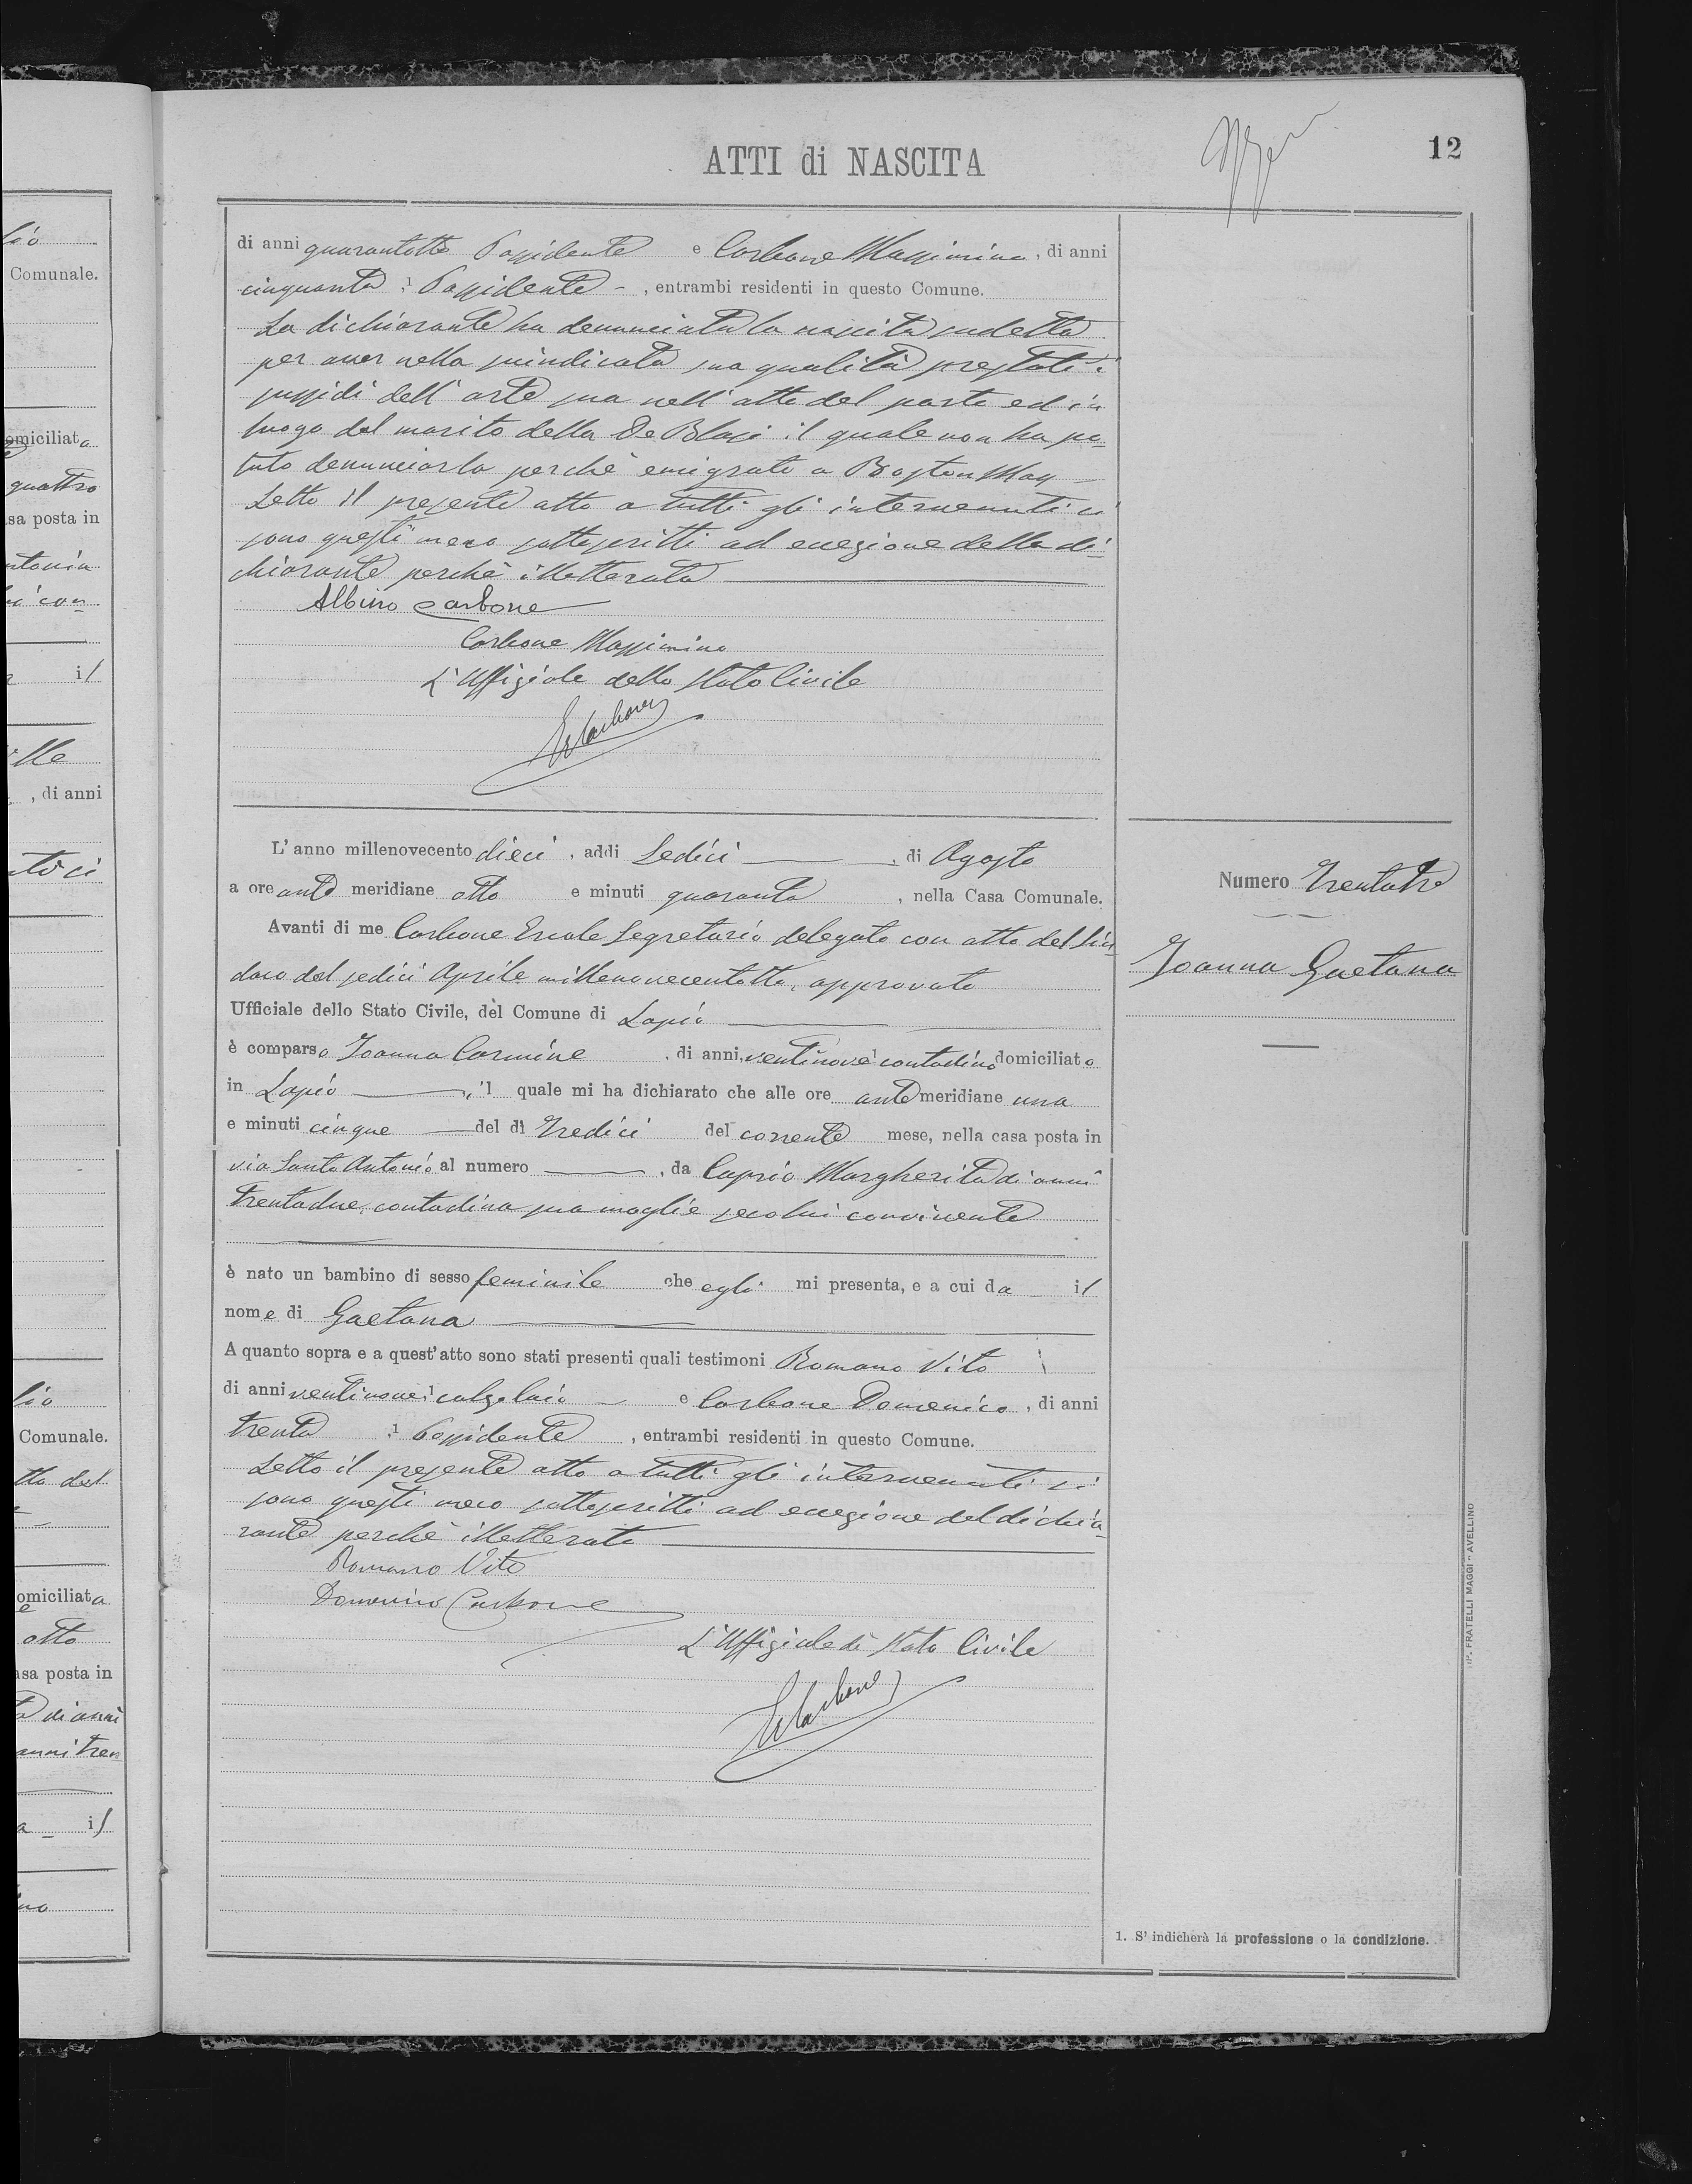 12
ATTI di NASCITA
di anni quarantotto Possidente e Carbone Massimino, di anni
cinquanta 1 Possidente - , entrambi residenti in questo Comune.
La dichiarante ha denunciata la nascita sudetta
per aver nella suindicata sua qualità prestati i
sussidi dell'arte sua nell'atto del parto ed in
luogo del marito della De Blasi il quale non ha po-
tuto denunciarla perchè emigrato a Boston Mas
Letto il presente atto a tutti gli intervenuti si
sono questi meco sottoscritti ad eccezione della di-
chiarante perchè illetterata
Albino Carbone
Carbone Massimino
L'Uffiziale dello Stato Civile
L'anno millenovecento dieci, addi Sedici , di Agosto
a ore ante meridiane otto e minuti quaranta , nella Casa Comunale.
Avanti di me Carbone Ercole Segretario delegato con atto del Sin-
daco del sedici Aprile millenovecentotto, approvato
Ufficiale dello Stato Civile, del Comune di Lapio
è comparso Joanna Carmine , di anni ventinove contadino domiciliato
in Lapio , il quale mi ha dichiarato che alle ore antemeridiane una
e minuti cinque del dì tredici del corrente mese, nella casa posta in
via Santo Antonio al numero , da Caprio Margherita di anni
trentadue, contadina sua moglie secolui convivente
è nato un bambino di sesso feminile che egli mi presenta, e a cui da il
nome di Gaetana
A quanto sopra e a quest'atto sono stati presenti quali testimoni Romano Vito
di anni ventinove 1 calzolaio - e Carbone Domenico, di anni
trenta 1 Possidente , entrambi residenti in questo Comune.
Letto il presente atto a tutti gli intervenuti si
sono questi meco sottoscritti ad eccezione del dichia-
rante perchè illetterato
Romano Vito
Domenico Carbone
L'Uffiziale di Stato Civile
Numero Trentatre
Joanna Gaetana
1. S'indicherà la professione o la condizione.
TIP. FRATELLI MAGGI - AVELLINO
lio
Comunale.
omiciliata
quattro
sa posta in
ntonia
il
, di anni
lio
Comunale.
tto del
omiciliata
otto
asa posta in
di anni
anni tren
il